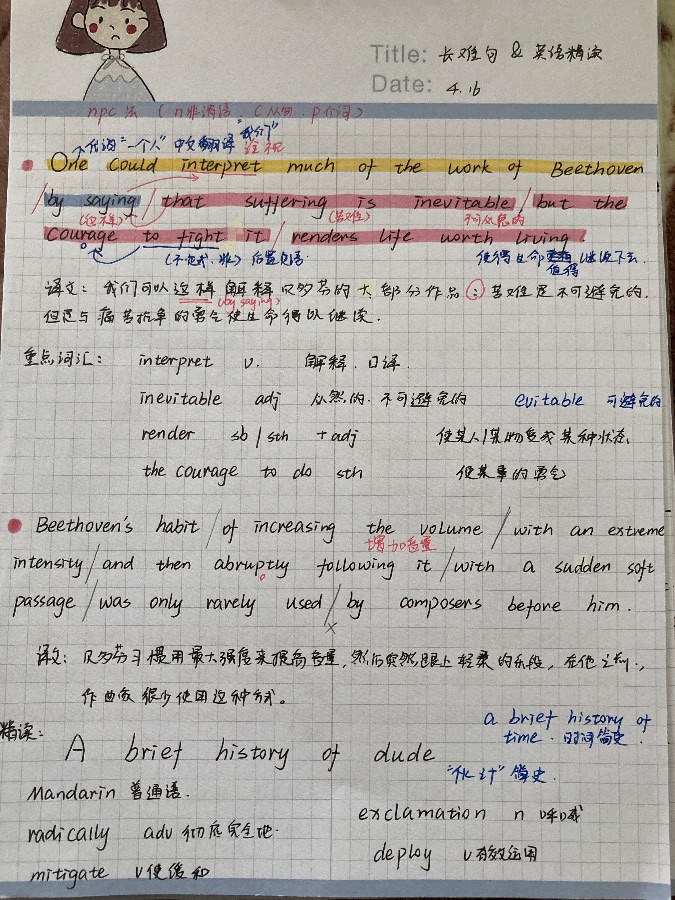 Title: 长难句 & 英语精读
Date: 4.16
npc法 (n非谓语, c从句, p介词)
不代词"一个人" 中文翻译"我们"
One could interpret much of the work of Beethoven
by saying / that suffering is inevitable / but the
(这样) (苦难) 不可避免的
courage to fight it / renders life worth living.
(不定式, 非) 后置定语. 使得生命 值得 继续下去.
译文: 我们可以这样解释贝多芬的大部分作品: 苦难是不可避免的,
(by saying)
但是与痛苦抗争的勇气使生命得以继续.
重点词汇: interpret v. 解释. 口译.
inevitable adj 必然的. 不可避免的 evitable 可避免的
render sb / sth + adj 使某人/某物变成某种状态.
the courage to do sth 做某事的勇气
Beethoven's habit / of increasing the volume / with an extreme
增加音量
intensity / and then abruptly following it / with a sudden soft
passage / was only rarely used / by composers before him.
译文: 贝多芬习惯用最大强度来提高音量, 然后突然跟上轻柔的乐段, 在他之前.,
作曲家很少使用这种方式。
精读:
a brief history of
time. 时间简史.
A brief history of dude
"伙计"简史.
Mandarin 普通话.
exclamation n 呼喊
radically adv 彻底完全地.
deploy v 有效运用
mitigate v 使缓和